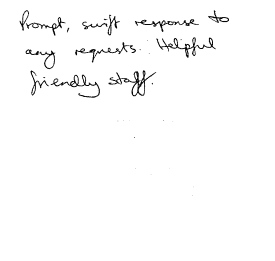 Prompt, swift response to
any requests. Helpful
friendly staff.